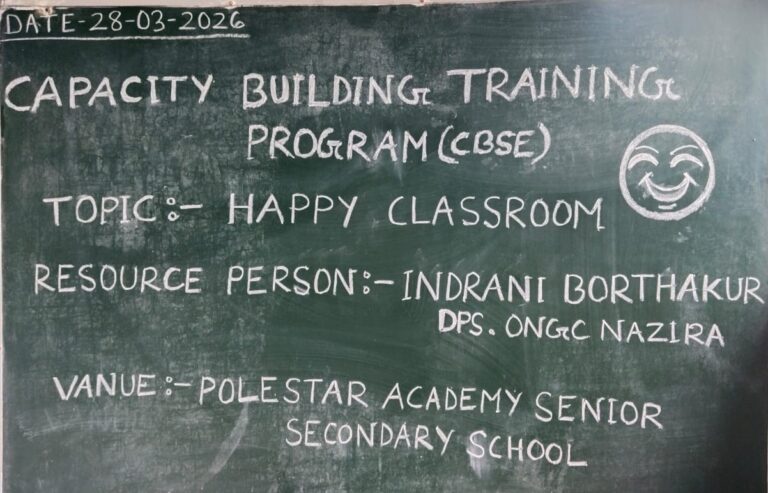 DATE-28-03-2026
CAPACITY BUILDING TRAINING
PROGRAM (CBSE)
TOPIC:- HAPPY CLASSROOM
RESOURCE PERSON:- INDRANI BORTHAKUR
DPS. ONGC NAZIRA
VANUE:- POLESTAR ACADEMY SENIOR
SECONDARY SCHOOL